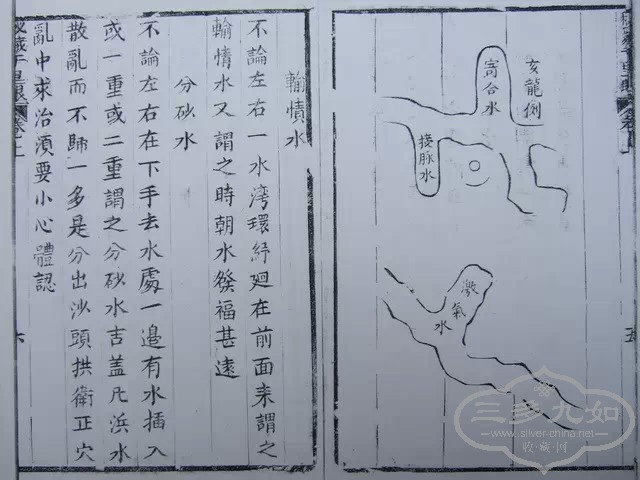 亥龍倒
寄合水
接脉水
激氣水
五
輸情水
不論左右一水湾環紓廻在前面来謂之
輸情水又謂之時朝水發福甚遠
分砂水
不論左右在下手去水處一邊有水插入
或一重或二重謂之分砂水吉盖凡浜水
散亂而不歸一多是分出沙頭拱衛正穴
亂中求治須要小心體認
六
三多九如
www.silver-china.net
收·藏·网